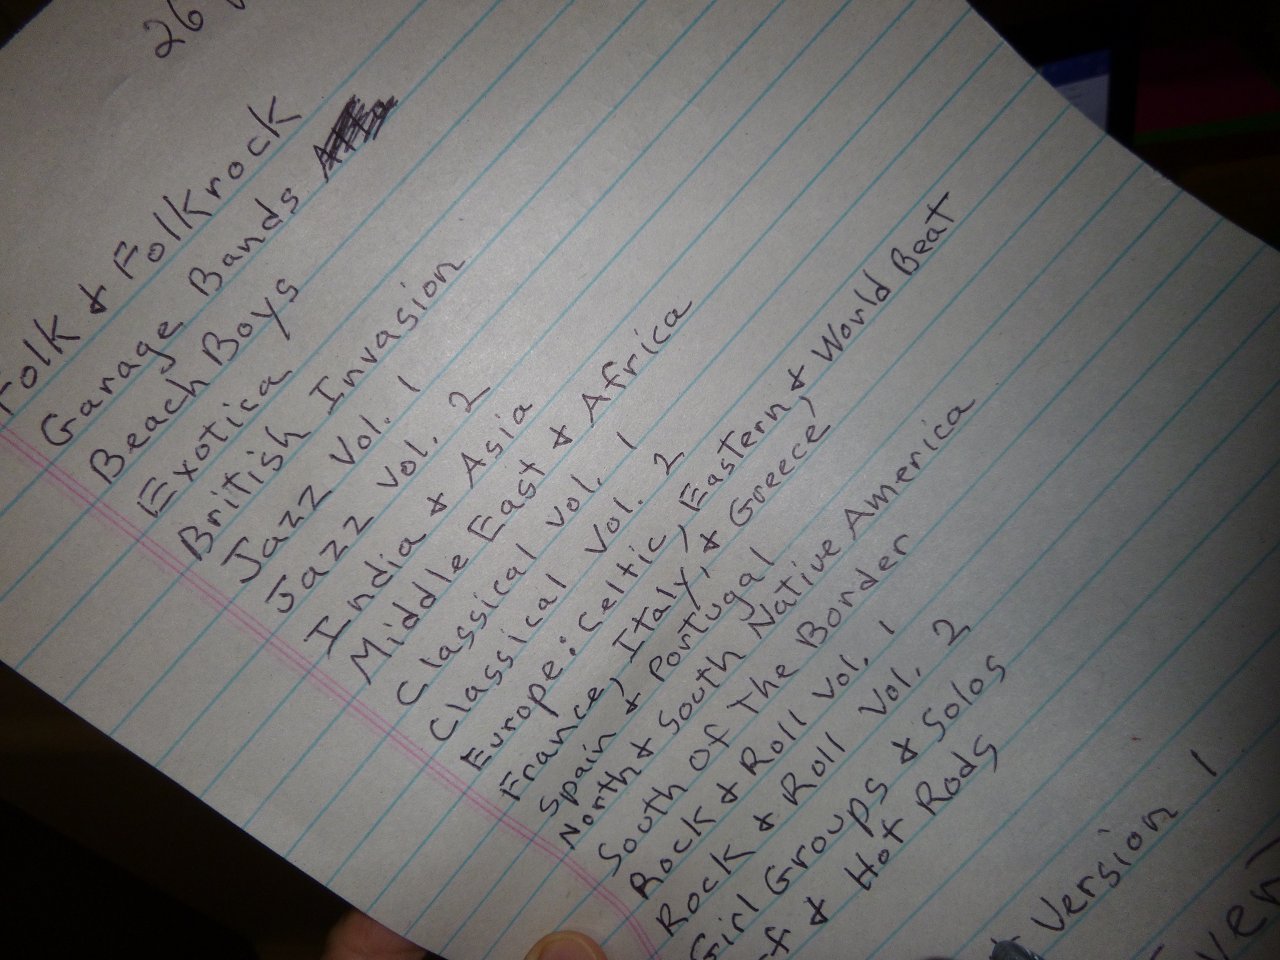 26
Folk & Folkrock
Garage Bands
Beach Boys
Exotica
British Invasion
Jazz Vol. 1
Jazz Vol. 2
India & Asia
Middle East & Africa
Classical Vol. 1
Classical Vol. 2
Europe: Celtic, Eastern & World Beat
France, Italy, & Greece,
Spain & Portugal
North & South Native America
South Of The Border
Rock & Roll Vol. 1
Rock & Roll Vol. 2
Girl Groups & Solos
& Hot Rods
Version 1